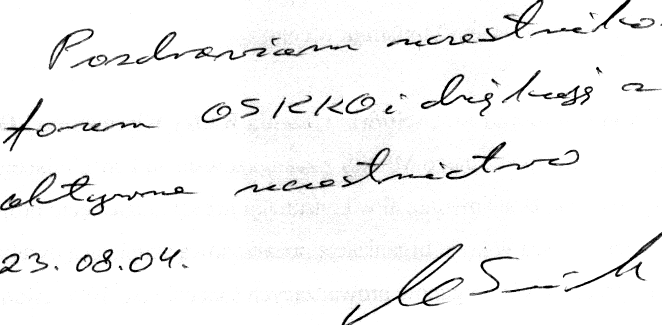 Pozdrawiam uczestniko
forum OSKKO i dziękuję z
aktywne uczestnictwo
23.08.04.